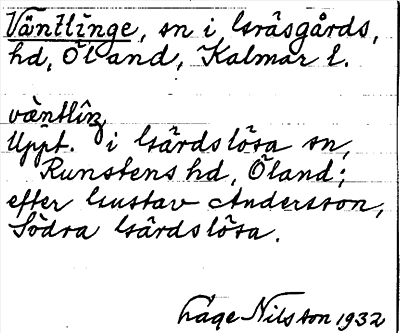 Väntlinge, sn i Gräsgårds,
hd, Öland, Kalmar l.
vä̀ntlîŋ
Uppt. i Gärdslösa sn,
Runstens hd, Öland;
efter Gustav Andersson,
Södra Gärdslösa.
Åge Nilsson 1932